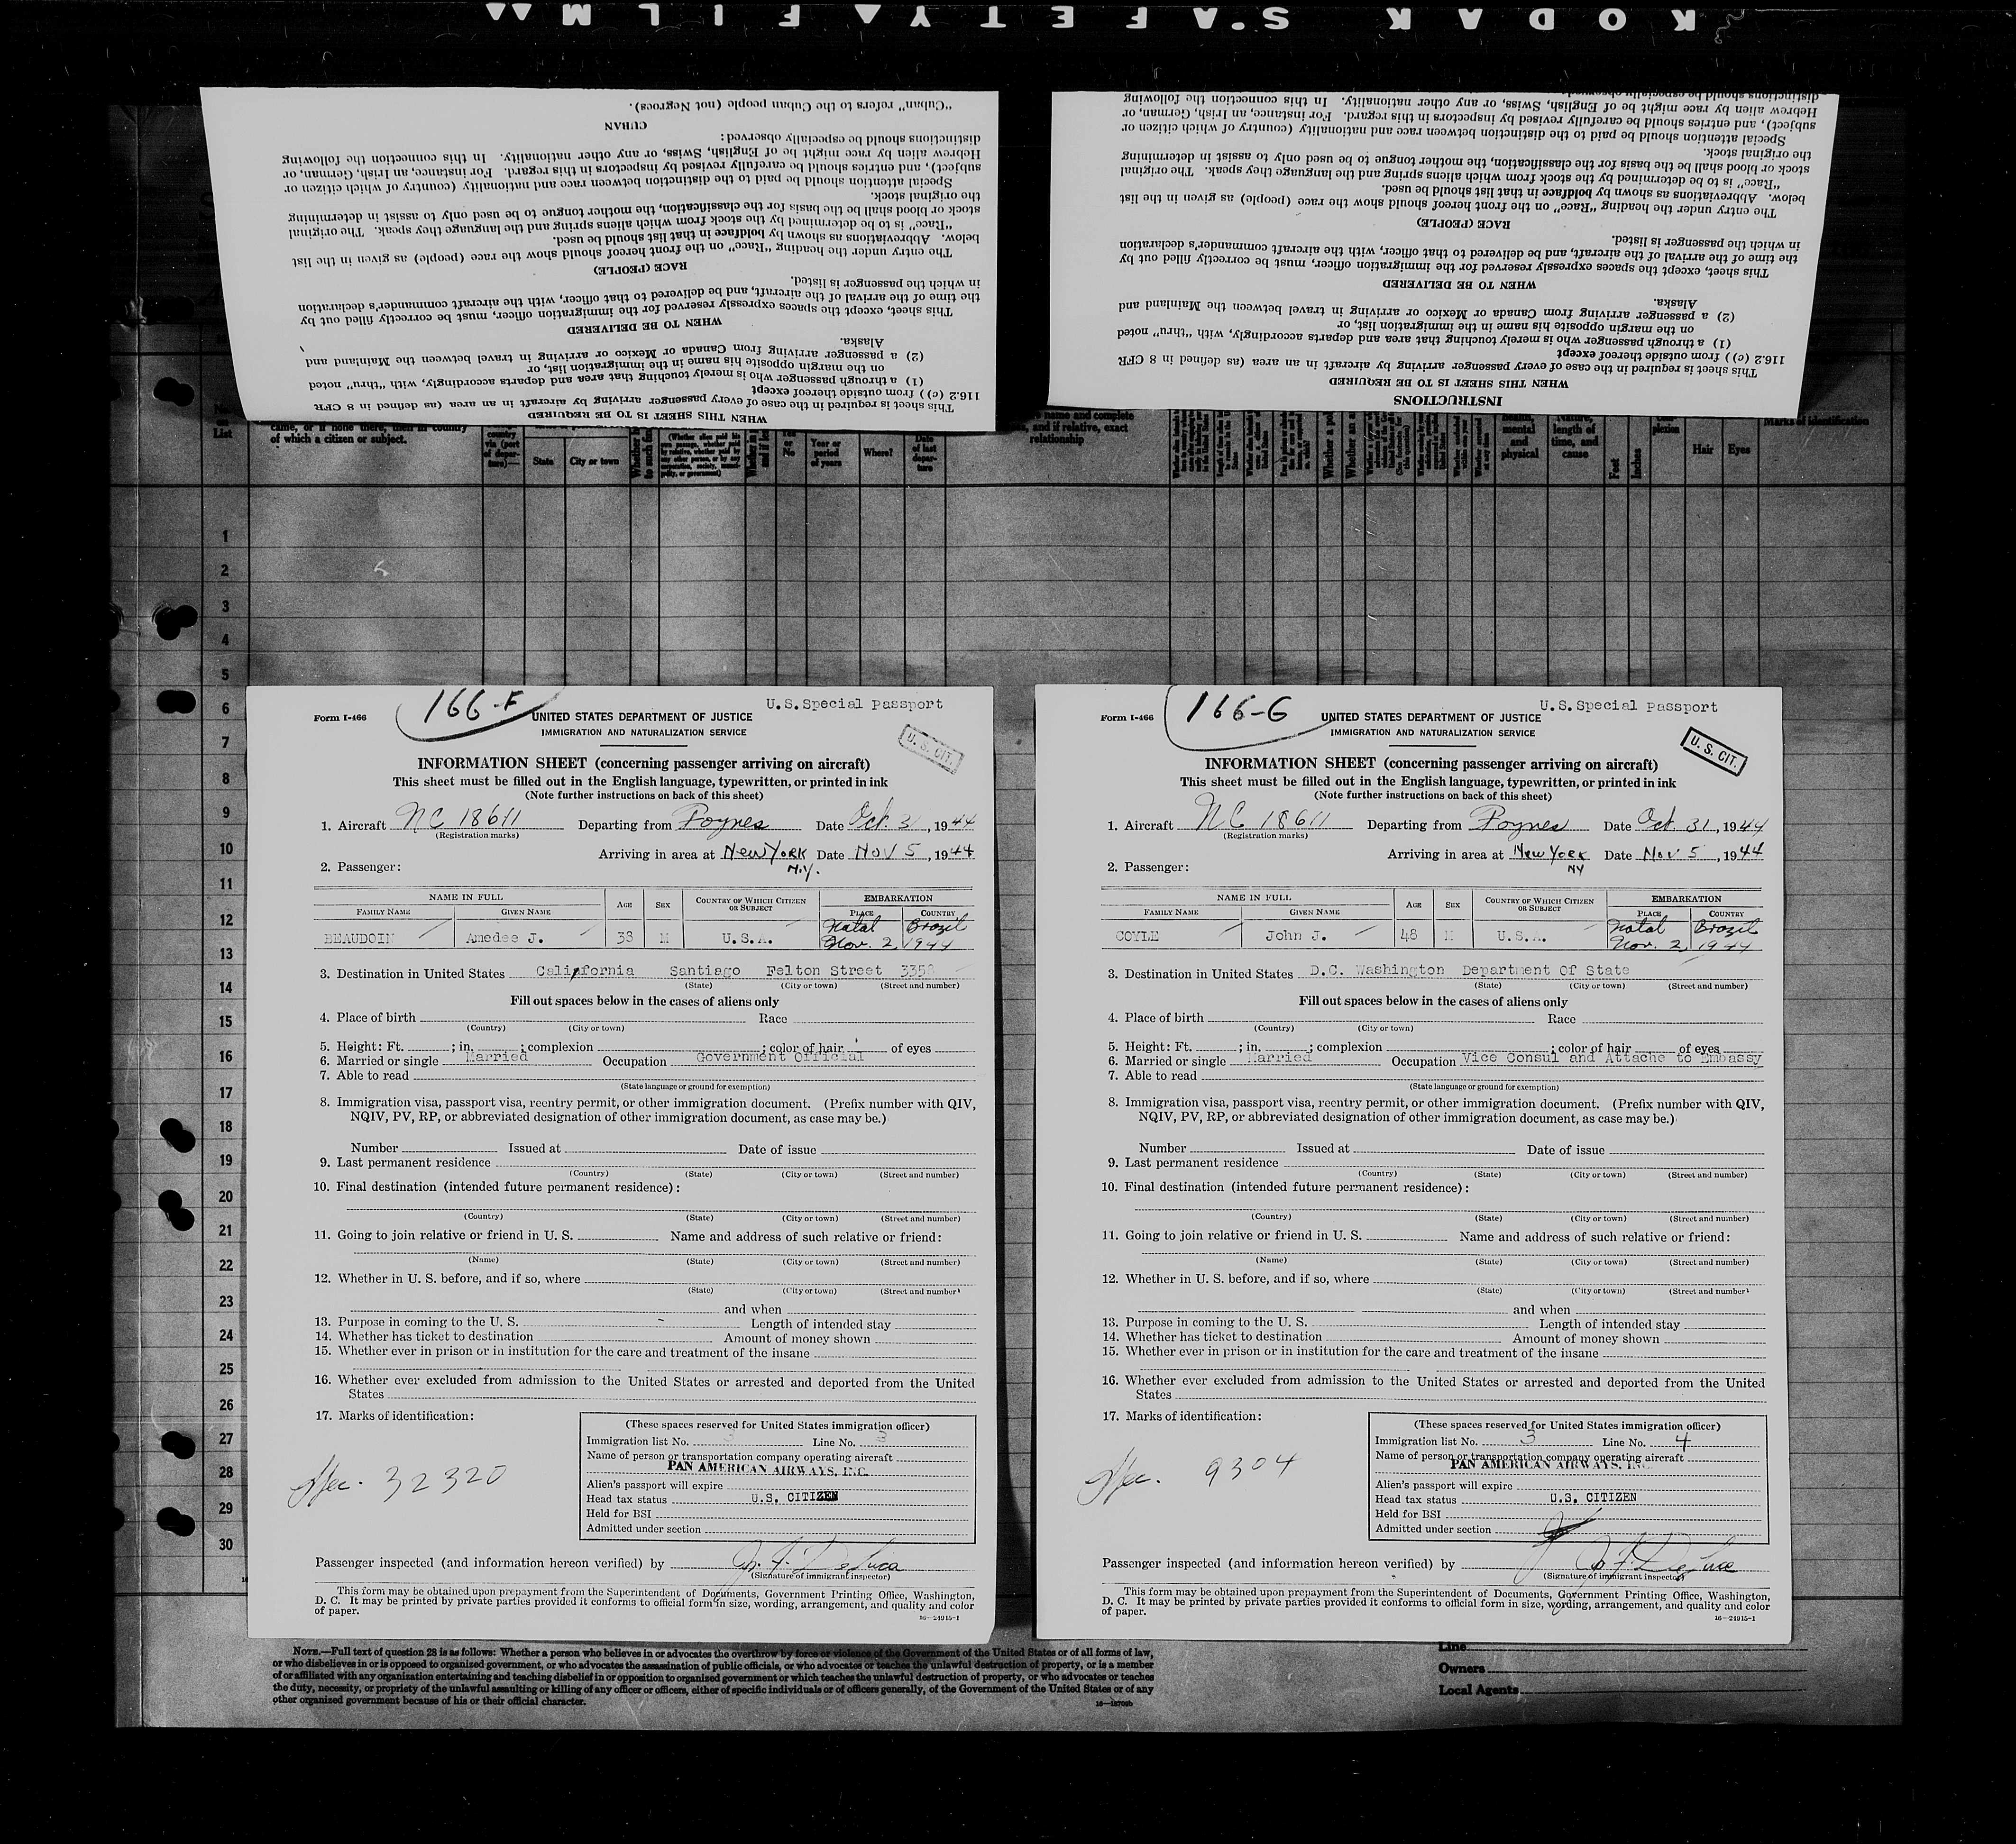 KODAK SAFETY FILM
"Cuban" refers to the Cuban people (not Negroes).
CUBAN
distinctions should be especially observed:
Hebrew alien by race might be of English, Swiss, or any other nationality. In this connection the following
subject), and entries should be carefully revised by inspectors in this regard. For instance, an Irish, German, or
Special attention should be paid to the distinction between race and nationality (country of which citizen or
the original stock.
stock or blood shall be the basis for the classification, the mother tongue to be used only to assist in determining
"Race" is to be determined by the stock from which aliens spring and the language they speak. The original
below. Abbreviations as shown by boldface in that list should be used.
The entry under the heading "Race" on the front hereof should show the race (people) as given in the list
RACE (PEOPLE)
in which the passenger is listed.
the time of the arrival of the aircraft, and be delivered to that officer, with the aircraft commander's declaration
This sheet, except the spaces expressly reserved for the immigration officer, must be correctly filled out by
WHEN TO BE DELIVERED
Alaska.
(2) a passenger arriving from Canada or Mexico or arriving in travel between the Mainland and
on the margin opposite his name in the immigration list, or
(1) a through passenger who is merely touching that area and departs accordingly, with "thru" noted
116.2 (c)) from outside thereof except
This sheet is required in the case of every passenger arriving by aircraft in an area (as defined in 8 CFR
WHEN THIS SHEET IS TO BE REQUIRED
distinctions should be especially observed:
Hebrew alien by race might be of English, Swiss, or any other nationality. In this connection the following
subject), and entries should be carefully revised by inspectors in this regard. For instance, an Irish, German, or
Special attention should be paid to the distinction between race and nationality (country of which citizen or
the original stock.
stock or blood shall be the basis for the classification, the mother tongue to be used only to assist in determining
"Race" is to be determined by the stock from which aliens spring and the language they speak. The original
below. Abbreviations as shown by boldface in that list should be used.
The entry under the heading "Race" on the front hereof should show the race (people) as given in the list
RACE (PEOPLE)
in which the passenger is listed.
the time of the arrival of the aircraft, and be delivered to that officer, with the aircraft commander's declaration
This sheet, except the spaces expressly reserved for the immigration officer, must be correctly filled out by
WHEN TO BE DELIVERED
Alaska.
(2) a passenger arriving from Canada or Mexico or arriving in travel between the Mainland and
on the margin opposite his name in the immigration list, or
(1) a through passenger who is merely touching that area and departs accordingly, with "thru" noted
116.2 (c)) from outside thereof except
This sheet is required in the case of every passenger arriving by aircraft in an area (as defined in 8 CFR
WHEN THIS SHEET IS TO BE REQUIRED
INSTRUCTIONS
List
came, or if none there, then in country
of which a citizen or subject.
country
via (port
of depar-
ture)
State
City or town
or
No
Year or
period
of years
Where?
Date
of last
depar-
ture
name and complete
and if relative, exact
relationship
mental
and
physical
length of
time, and
cause
Feet
Inches
plexion
Hair
Eyes
Marks of identification
1
2
3
4
5
6
7
8
9
10
11
12
13
14
15
16
17
18
19
20
21
22
23
24
25
26
27
28
29
30
166-F
U.S.Special Passport
Form I-466
UNITED STATES DEPARTMENT OF JUSTICE
IMMIGRATION AND NATURALIZATION SERVICE
U. S. CIT.
INFORMATION SHEET (concerning passenger arriving on aircraft)
This sheet must be filled out in the English language, typewritten, or printed in ink
(Note further instructions on back of this sheet)
1. Aircraft NC 18611 Departing from Foynes Date Oct. 31, 1944
(Registration marks)
Arriving in area at New York Date Nov 5, 1944
N.Y.
2. Passenger:
NAME IN FULL AGE SEX COUNTRY OF WHICH CITIZEN OR SUBJECT EMBARKATION
FAMILY NAME GIVEN NAME PLACE COUNTRY
Natal Brazil
BEAUDOIN Amedee J. 38 M U.S.A. Nov. 2, 1944
3. Destination in United States California Santiago Felton Street 3358
(State) (City or town) (Street and number)
Fill out spaces below in the cases of aliens only
4. Place of birth Race
(Country) (City or town)
5. Height: Ft. ; in. ; complexion ; color of hair of eyes
6. Married or single Married Occupation Government Official
7. Able to read
(State language or ground for exemption)
8. Immigration visa, passport visa, reentry permit, or other immigration document. (Prefix number with QIV,
NQIV, PV, RP, or abbreviated designation of other immigration document, as case may be.)
Number Issued at Date of issue
9. Last permanent residence
(Country) (State) (City or town) (Street and number)
10. Final destination (intended future permanent residence):
(Country) (State) (City or town) (Street and number)
11. Going to join relative or friend in U. S. Name and address of such relative or friend:
(Name) (State) (City or town) (Street and number)
12. Whether in U. S. before, and if so, where
(State) (City or town) (Street and number)
and when
13. Purpose in coming to the U. S. Length of intended stay
14. Whether has ticket to destination Amount of money shown
15. Whether ever in prison or in institution for the care and treatment of the insane
16. Whether ever excluded from admission to the United States or arrested and deported from the United
States
17. Marks of identification:
(These spaces reserved for United States immigration officer)
Immigration list No. 3 Line No.
Name of person or transportation company operating aircraft
PAN AMERICAN AIRWAYS, INC.
Spec. 32320
Alien's passport will expire
Head tax status U.S. CITIZEN
Held for BSI
Admitted under section
Passenger inspected (and information hereon verified) by Jo. F. DeLuca
(Signature of immigrant inspector)
This form may be obtained upon prepayment from the Superintendent of Documents, Government Printing Office, Washington,
D. C. It may be printed by private parties provided it conforms to official form in size, wording, arrangement, and quality and color
of paper.
16—24915-1
166-G
U.S.Special Passport
Form I-466
UNITED STATES DEPARTMENT OF JUSTICE
IMMIGRATION AND NATURALIZATION SERVICE
U. S. CIT.
INFORMATION SHEET (concerning passenger arriving on aircraft)
This sheet must be filled out in the English language, typewritten, or printed in ink
(Note further instructions on back of this sheet)
1. Aircraft NC 18611 Departing from Foynes Date Oct. 31, 1944
(Registration marks)
Arriving in area at New York Date Nov 5, 1944
NY
2. Passenger:
NAME IN FULL AGE SEX COUNTRY OF WHICH CITIZEN OR SUBJECT EMBARKATION
FAMILY NAME GIVEN NAME PLACE COUNTRY
Natal Brazil
COYLE John J. 48 M U.S.A. Nov. 2, 1944
3. Destination in United States D.C. Washington Department Of State
(State) (City or town) (Street and number)
Fill out spaces below in the cases of aliens only
4. Place of birth Race
(Country) (City or town)
5. Height: Ft. ; in. ; complexion ; color of hair of eyes
6. Married or single Married Occupation Vice Consul and Attache to Embassy
7. Able to read
(State language or ground for exemption)
8. Immigration visa, passport visa, reentry permit, or other immigration document. (Prefix number with QIV,
NQIV, PV, RP, or abbreviated designation of other immigration document, as case may be.)
Number Issued at Date of issue
9. Last permanent residence
(Country) (State) (City or town) (Street and number)
10. Final destination (intended future permanent residence):
(Country) (State) (City or town) (Street and number)
11. Going to join relative or friend in U. S. Name and address of such relative or friend:
(Name) (State) (City or town) (Street and number)
12. Whether in U. S. before, and if so, where
(State) (City or town) (Street and number)
and when
13. Purpose in coming to the U. S. Length of intended stay
14. Whether has ticket to destination Amount of money shown
15. Whether ever in prison or in institution for the care and treatment of the insane
16. Whether ever excluded from admission to the United States or arrested and deported from the United
States
17. Marks of identification:
(These spaces reserved for United States immigration officer)
Immigration list No. 3 Line No. 4
Name of person or transportation company operating aircraft
PAN AMERICAN AIRWAYS, INC.
Spec. 9304
Alien's passport will expire
Head tax status U.S. CITIZEN
Held for BSI
Admitted under section
Passenger inspected (and information hereon verified) by Jo. F. DeLuca
(Signature of immigrant inspector)
This form may be obtained upon prepayment from the Superintendent of Documents, Government Printing Office, Washington,
D. C. It may be printed by private parties provided it conforms to official form in size, wording, arrangement, and quality and color
of paper.
16—24915-1
NOTE.—Full text of question 28 is as follows: Whether a person who believes in or advocates the overthrow by force or violence of the Government of the United States or of all forms of law,
or who disbelieves in or is opposed to organized government, or who advocates the assassination of public officials, or who advocates or teaches the unlawful destruction of property, or is a member
of or affiliated with any organization entertaining and teaching disbelief in or opposition to organized government or which teaches the unlawful destruction of property, or who advocates or teaches
the duty, necessity, or propriety of the unlawful assaulting or killing of any officer or officers, either of specific individuals or of officers generally, of the Government of the United States or of any
other organized government because of his or their official character.
16—18700b
Line
Owners
Local Agents